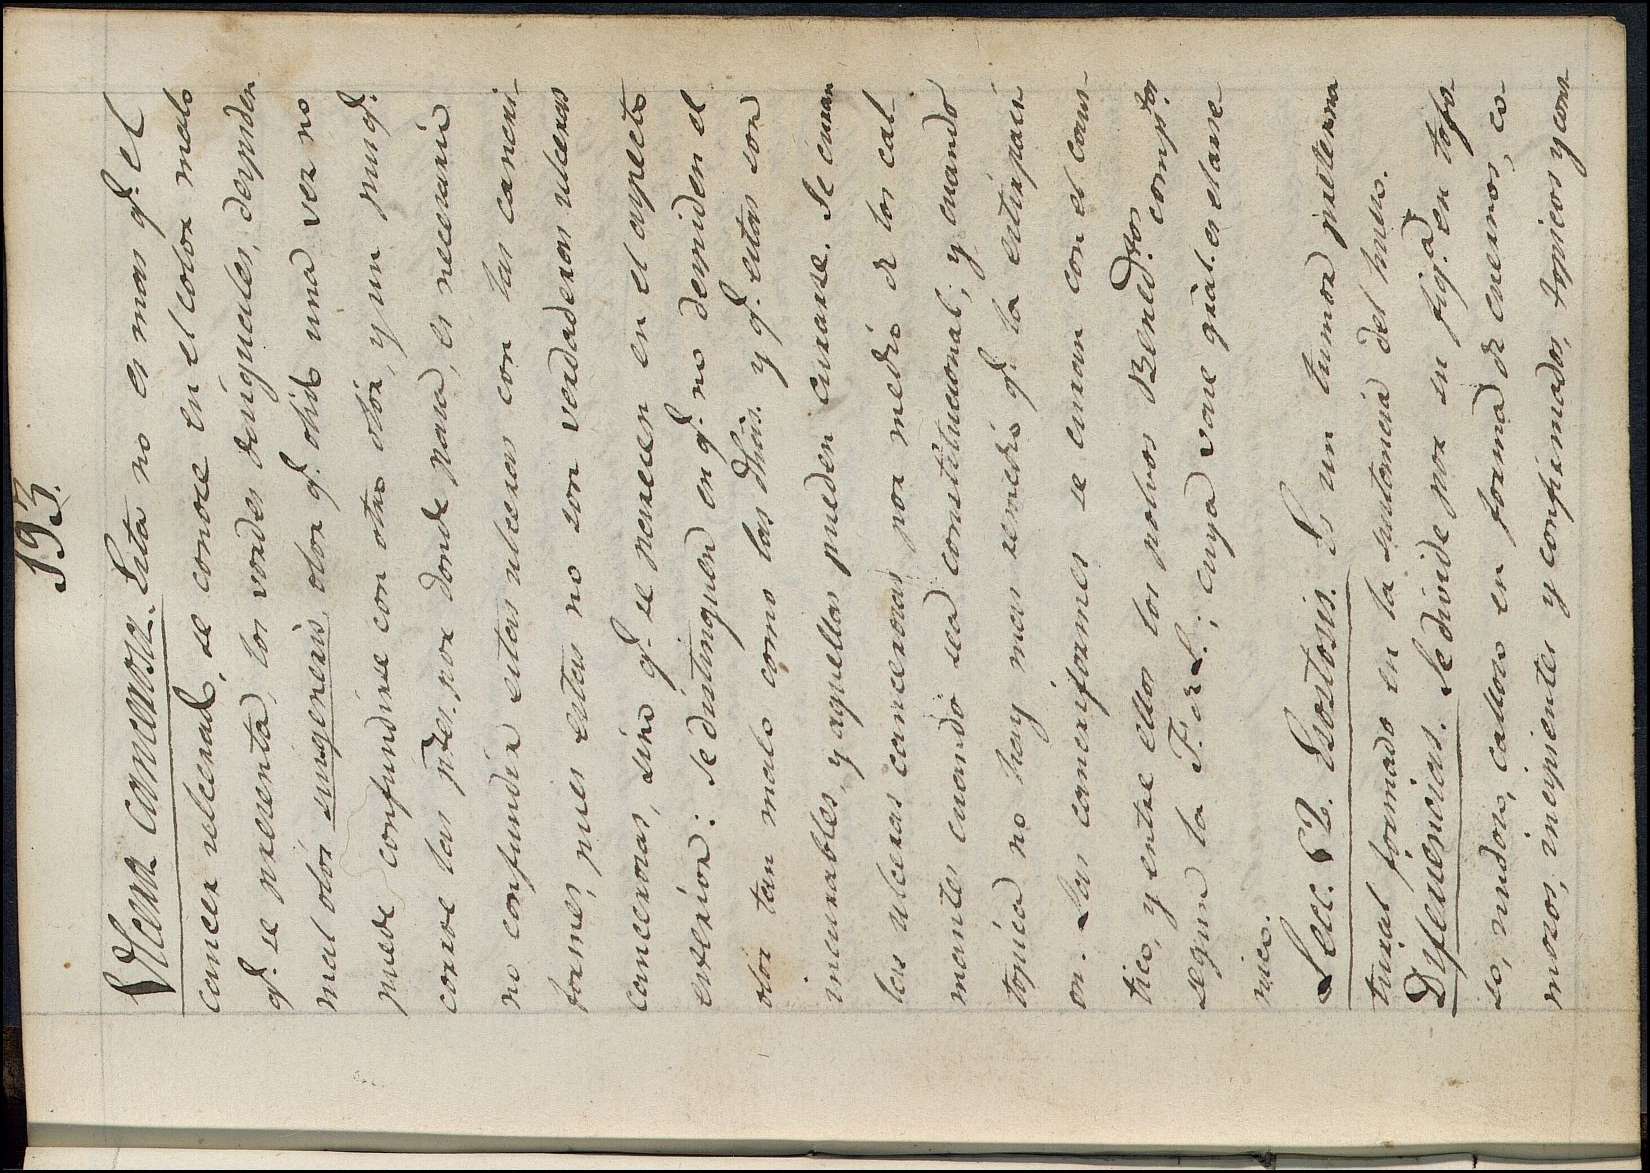 193.
Ulcera cancerosa. Esta no es mas q.e el
cancer ulcerado, se conoce en el color malo
q.e se presenta, los vordes desiguales, despiden
mal olor suigeneris, olor q.e olido una vez no
puede confundirse con otro olor, y un pus q.e
corroe las ptes. por donde pasa, es necesario
no confundir estas ulceras con las canceri-
formes, pues estas no son verdaderas ulceras
cancerosas, sino q.e se parecen en el aspecto
exterior: se distinguen en q.e no despiden el
olor tan malo como las dhas. y q.e estas son
incurables, y aquellas pueden curarse. Se curan
las ulceras cancerosas por medio de los cal-
mantes cuando sea constitucional; y cuando
topica no hay mas remedio q.e la extirpaci-
on. Las canceriformes se curan con el caus-
tico, y entre ellos los polvos Bened.tos comp.tos
segun la F. de L.; cuya vase g.ral es el arse-
nico.
Lecc. 52. Esostosis. Es un tumor preterna
tural formado en la sustancia del hueso.
Diferencias. Se divide por su fig.a en tofo
so, nudoso, calloso en forma de cuernos, co-
mosos, incipientes y confirmados, topicos y con